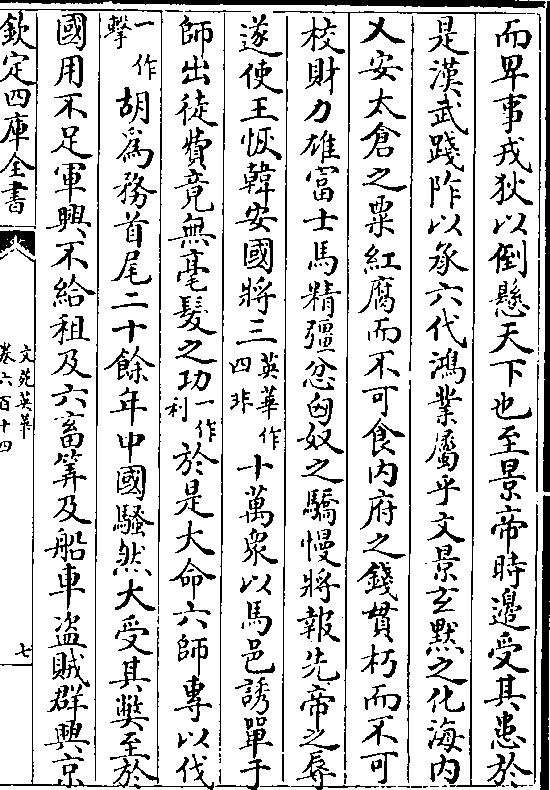 而卑事戎狄以倒懸天下也至景帝時邊受其患於
是漢武踐阼以承六代鴻業屬乎文景玄默之化海内
乂安太倉之粟紅腐而不可食内府之錢貫朽而不可
校財力雄富士馬精彊忿匈奴之驕慢將報先帝之辱
遂使王恢韓安國將三英華作四非十萬衆以馬邑誘單于
師出徒費竟無毫髮之功一作利於是大命六師專以伐
一作擊胡爲務首尾二十餘年中國騷然大受其獘至於
國用不足軍興不給租及六畜筭及船車盗賊群興京
欽定四庫全書
文苑英華
卷六百十四
七